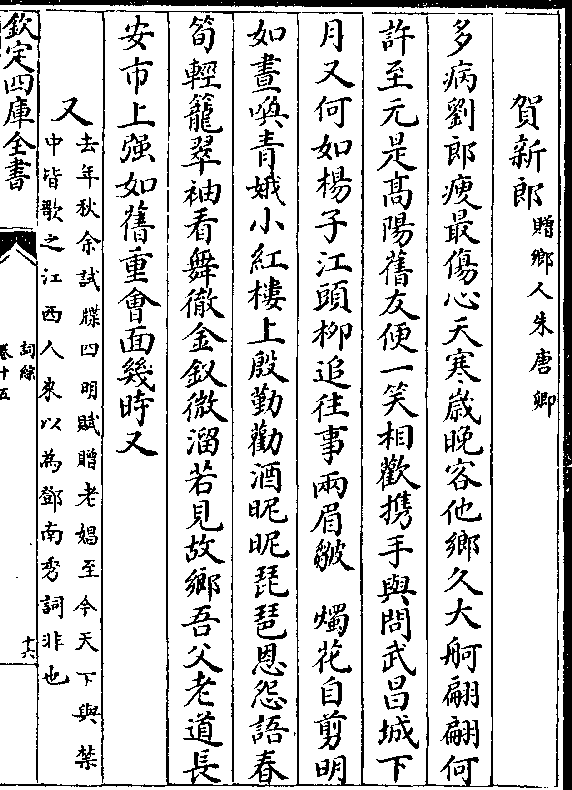 賀新郎贈鄉人朱唐卿
多病劉郎瘦最傷心天寒歲晚客他鄉久大舸翩翩何
許至元是髙陽舊友便一笑相歡携手與問武昌城下
月又何如楊子江頭柳追往事兩眉皺　燭花自剪明
如晝喚青娥小紅樓上殷勤勸酒昵昵琵琶恩怨語春
筍輕籠翠袖看舞徹金釵微溜若見故鄉吾父老道長
安市上强如舊重會面幾時又
又去年秋余試牒四明賦贈老娼至今天下與禁
中皆歌之江西人來以為鄧南秀詞非也
欽定四庫全書
詞綜
卷十五
十六